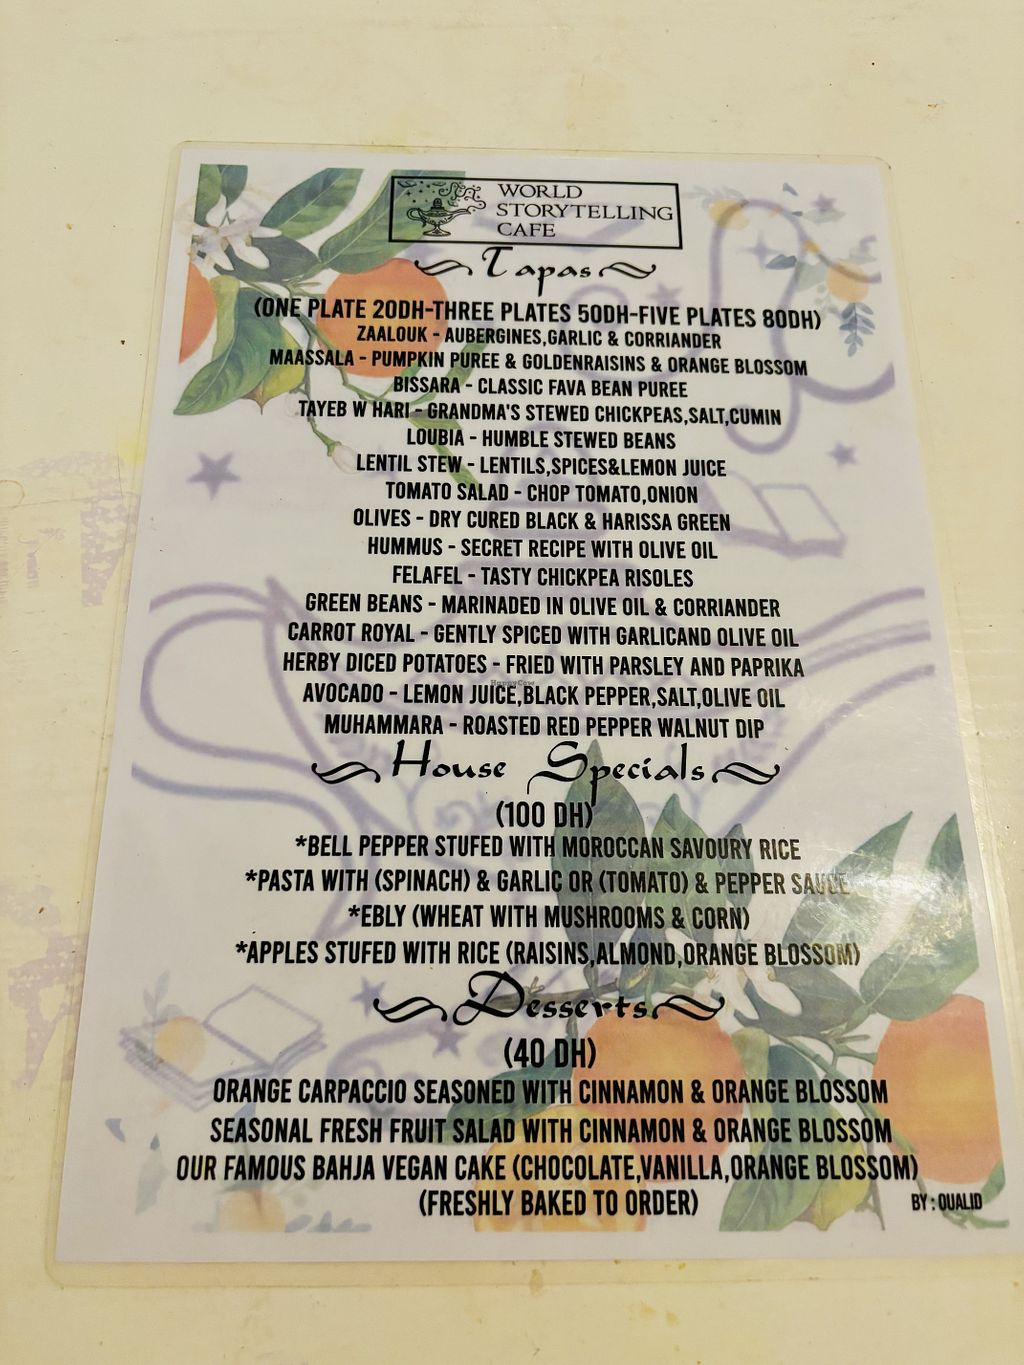 WORLD
STORYTELLING
CAFE
Tapas
(ONE PLATE 20DH-THREE PLATES 50DH-FIVE PLATES 80DH)
ZAALOUK - AUBERGINES,GARLIC & CORRIANDER
MAASSALA - PUMPKIN PUREE & GOLDENRAISINS & ORANGE BLOSSOM
BISSARA - CLASSIC FAVA BEAN PUREE
TAYEB W HARI - GRANDMA'S STEWED CHICKPEAS,SALT,CUMIN
LOUBIA - HUMBLE STEWED BEANS
LENTIL STEW - LENTILS,SPICES&LEMON JUICE
TOMATO SALAD - CHOP TOMATO,ONION
OLIVES - DRY CURED BLACK & HARISSA GREEN
HUMMUS - SECRET RECIPE WITH OLIVE OIL
FELAFEL - TASTY CHICKPEA RISOLES
GREEN BEANS - MARINADED IN OLIVE OIL & CORRIANDER
CARROT ROYAL - GENTLY SPICED WITH GARLICAND OLIVE OIL
HERBY DICED POTATOES - FRIED WITH PARSLEY AND PAPRIKA
HappyCow
AVOCADO - LEMON JUICE,BLACK PEPPER,SALT,OLIVE OIL
MUHAMMARA - ROASTED RED PEPPER WALNUT DIP
House Specials
(100 DH)
*BELL PEPPER STUFED WITH MOROCCAN SAVOURY RICE
*PASTA WITH (SPINACH) & GARLIC OR (TOMATO) & PEPPER SAUCE
*EBLY (WHEAT WITH MUSHROOMS & CORN)
*APPLES STUFED WITH RICE (RAISINS,ALMOND,ORANGE BLOSSOM)
Desserts
(40 DH)
ORANGE CARPACCIO SEASONED WITH CINNAMON & ORANGE BLOSSOM
SEASONAL FRESH FRUIT SALAD WITH CINNAMON & ORANGE BLOSSOM
OUR FAMOUS BAHJA VEGAN CAKE (CHOCOLATE,VANILLA,ORANGE BLOSSOM)
(FRESHLY BAKED TO ORDER)
BY : OUALID